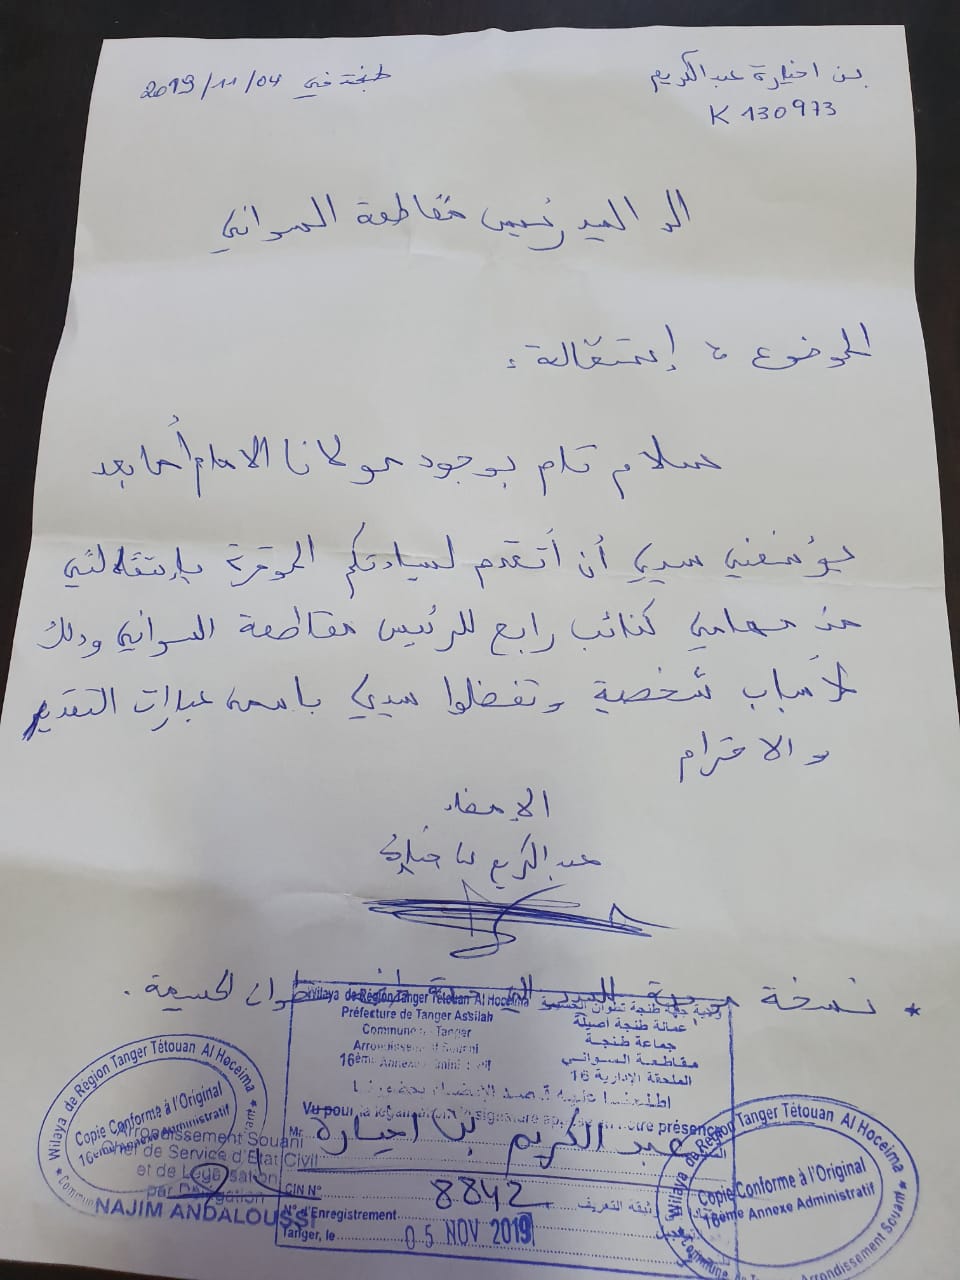 بن اخيارة عبد الكريم
K 130973
طنجة في 2019/11/04
الى السيد رئيس مقاطعة السواني
الموضوع : إستقالة
سلام تام بوجود مولانا الامام أما بعد
يؤسفني سيدي أن أتقدم لسيادتكم الموقرة بإستقالتي
من مهامي كنائب رابع للرئيس مقاطعة السواني وذلك
لأسباب شخصية وتفضلوا سيدي باسمى عبارات التقدير
و الاحترام
الإمضاء
عبد الكريم
* نسخة موجهة للسيد والي جهة تطوان الحسيمة .
Wilaya de Région Tanger Tétouan Al Hoceima
Préfecture de Tanger Assilah
Commune Tanger
Arrondissement Souani
16ème Annexe Administratif
ولاية جهة طنجة تطوان الحسيمة
عمالة طنجة اصيلة
جماعة طنجة
مقاطعة السواني
الملحقة الإدارية 16
Vu pour la légalisation de la signature apposée en notre présence
Mr. عبد الكريم بن اخيارة
CIN N°
وثيقة التعريف
N° d'Enregistrement 8842
Tanger, le 05 NOV 2019
Wilaya de Région Tanger Tétouan Al Hoceima
Copie Conforme à l'Original
16ème Annexe Administratif
Arrondissement Souani
Chef de Service d'Etat Civil
et de Légalisation
par Délégation
NAJIM ANDALOUSSI
Wilaya de Région Tanger Tétouan Al Hoceima
Copie Conforme à l'Original
16ème Annexe Administratif
Commune de Arrondissement Souani